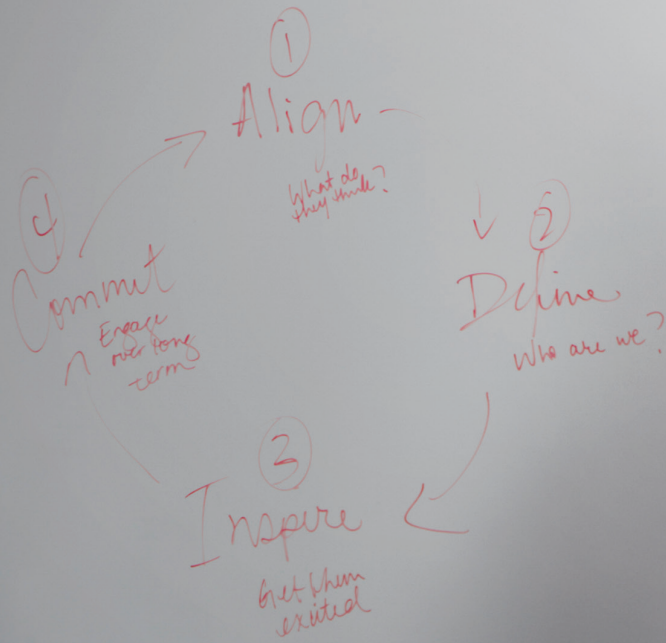 1
Align
What do
they think?
2
Define
Who are we?
3
Inspire
Get them
exited
4
Commit
Engage
over long
term